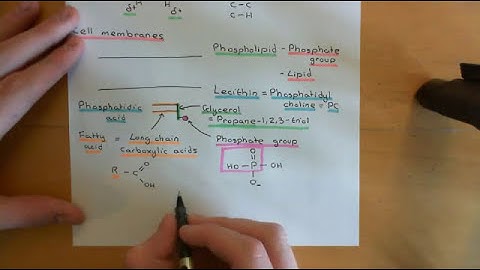 δ+ H H δ+
C - C
C - H
Cell membranes
Phospholipid - Phosphate
group
- Lipid
Lecithin = Phosphatidyl
choline = PC
Phosphatidic
acid
Glycerol
= Propane-1,2,3-triol
Fatty
acid = Long chain
carboxylic acids
Phosphate group
R - C
O
OH
O
HO - P - OH
O-